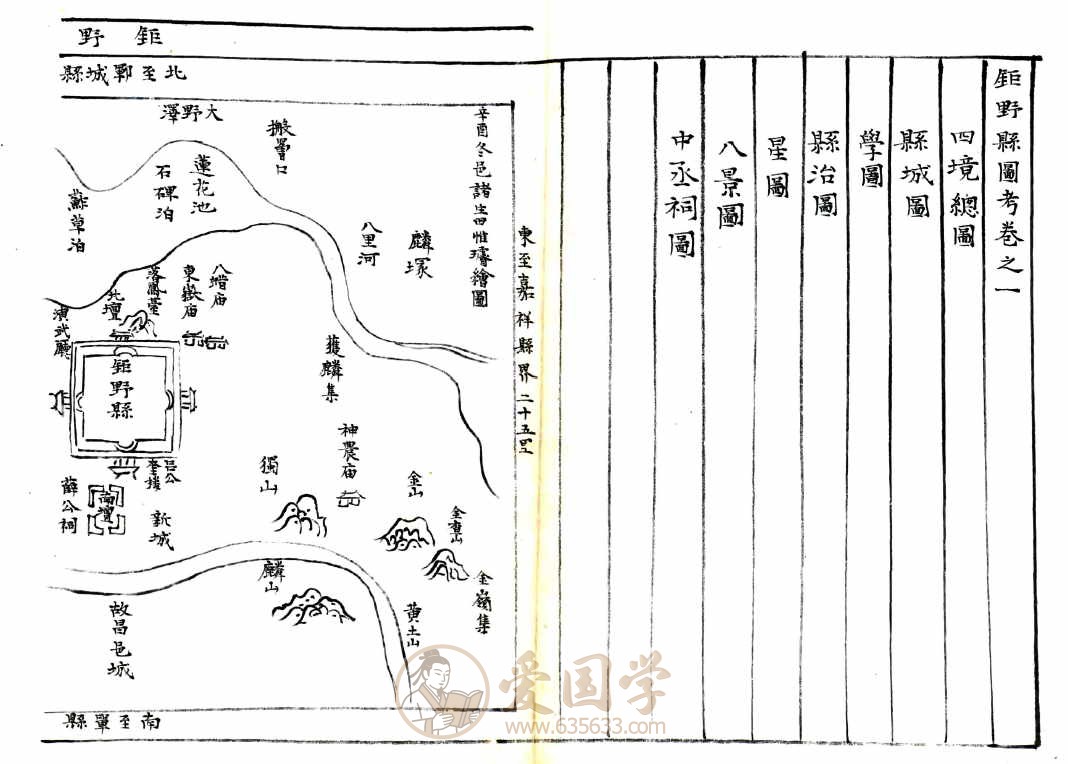 鉅野縣圖考卷之一
四境總圖
縣城圖
學圖
縣治圖
星圖
八景圖
中丞祠圖
鉅野
北至鄆城縣
東至嘉祥縣界二十五里
辛酉冬邑諸生田惟璿繪圖
大野澤
搬罾口
蓮花池
石碑泊
鮓草泊
麟塚
八里河
八蜡庙
東嶽庙
落鳳臺
北壇
演武廳
鉅野縣
獲麟集
神農庙
獨山
金山
金重山
金嶺集
呂公
奎樓
薛公祠
南壇
新城
麟山
黄土山
故昌邑城
南至單縣
爱国学
www.635633.com